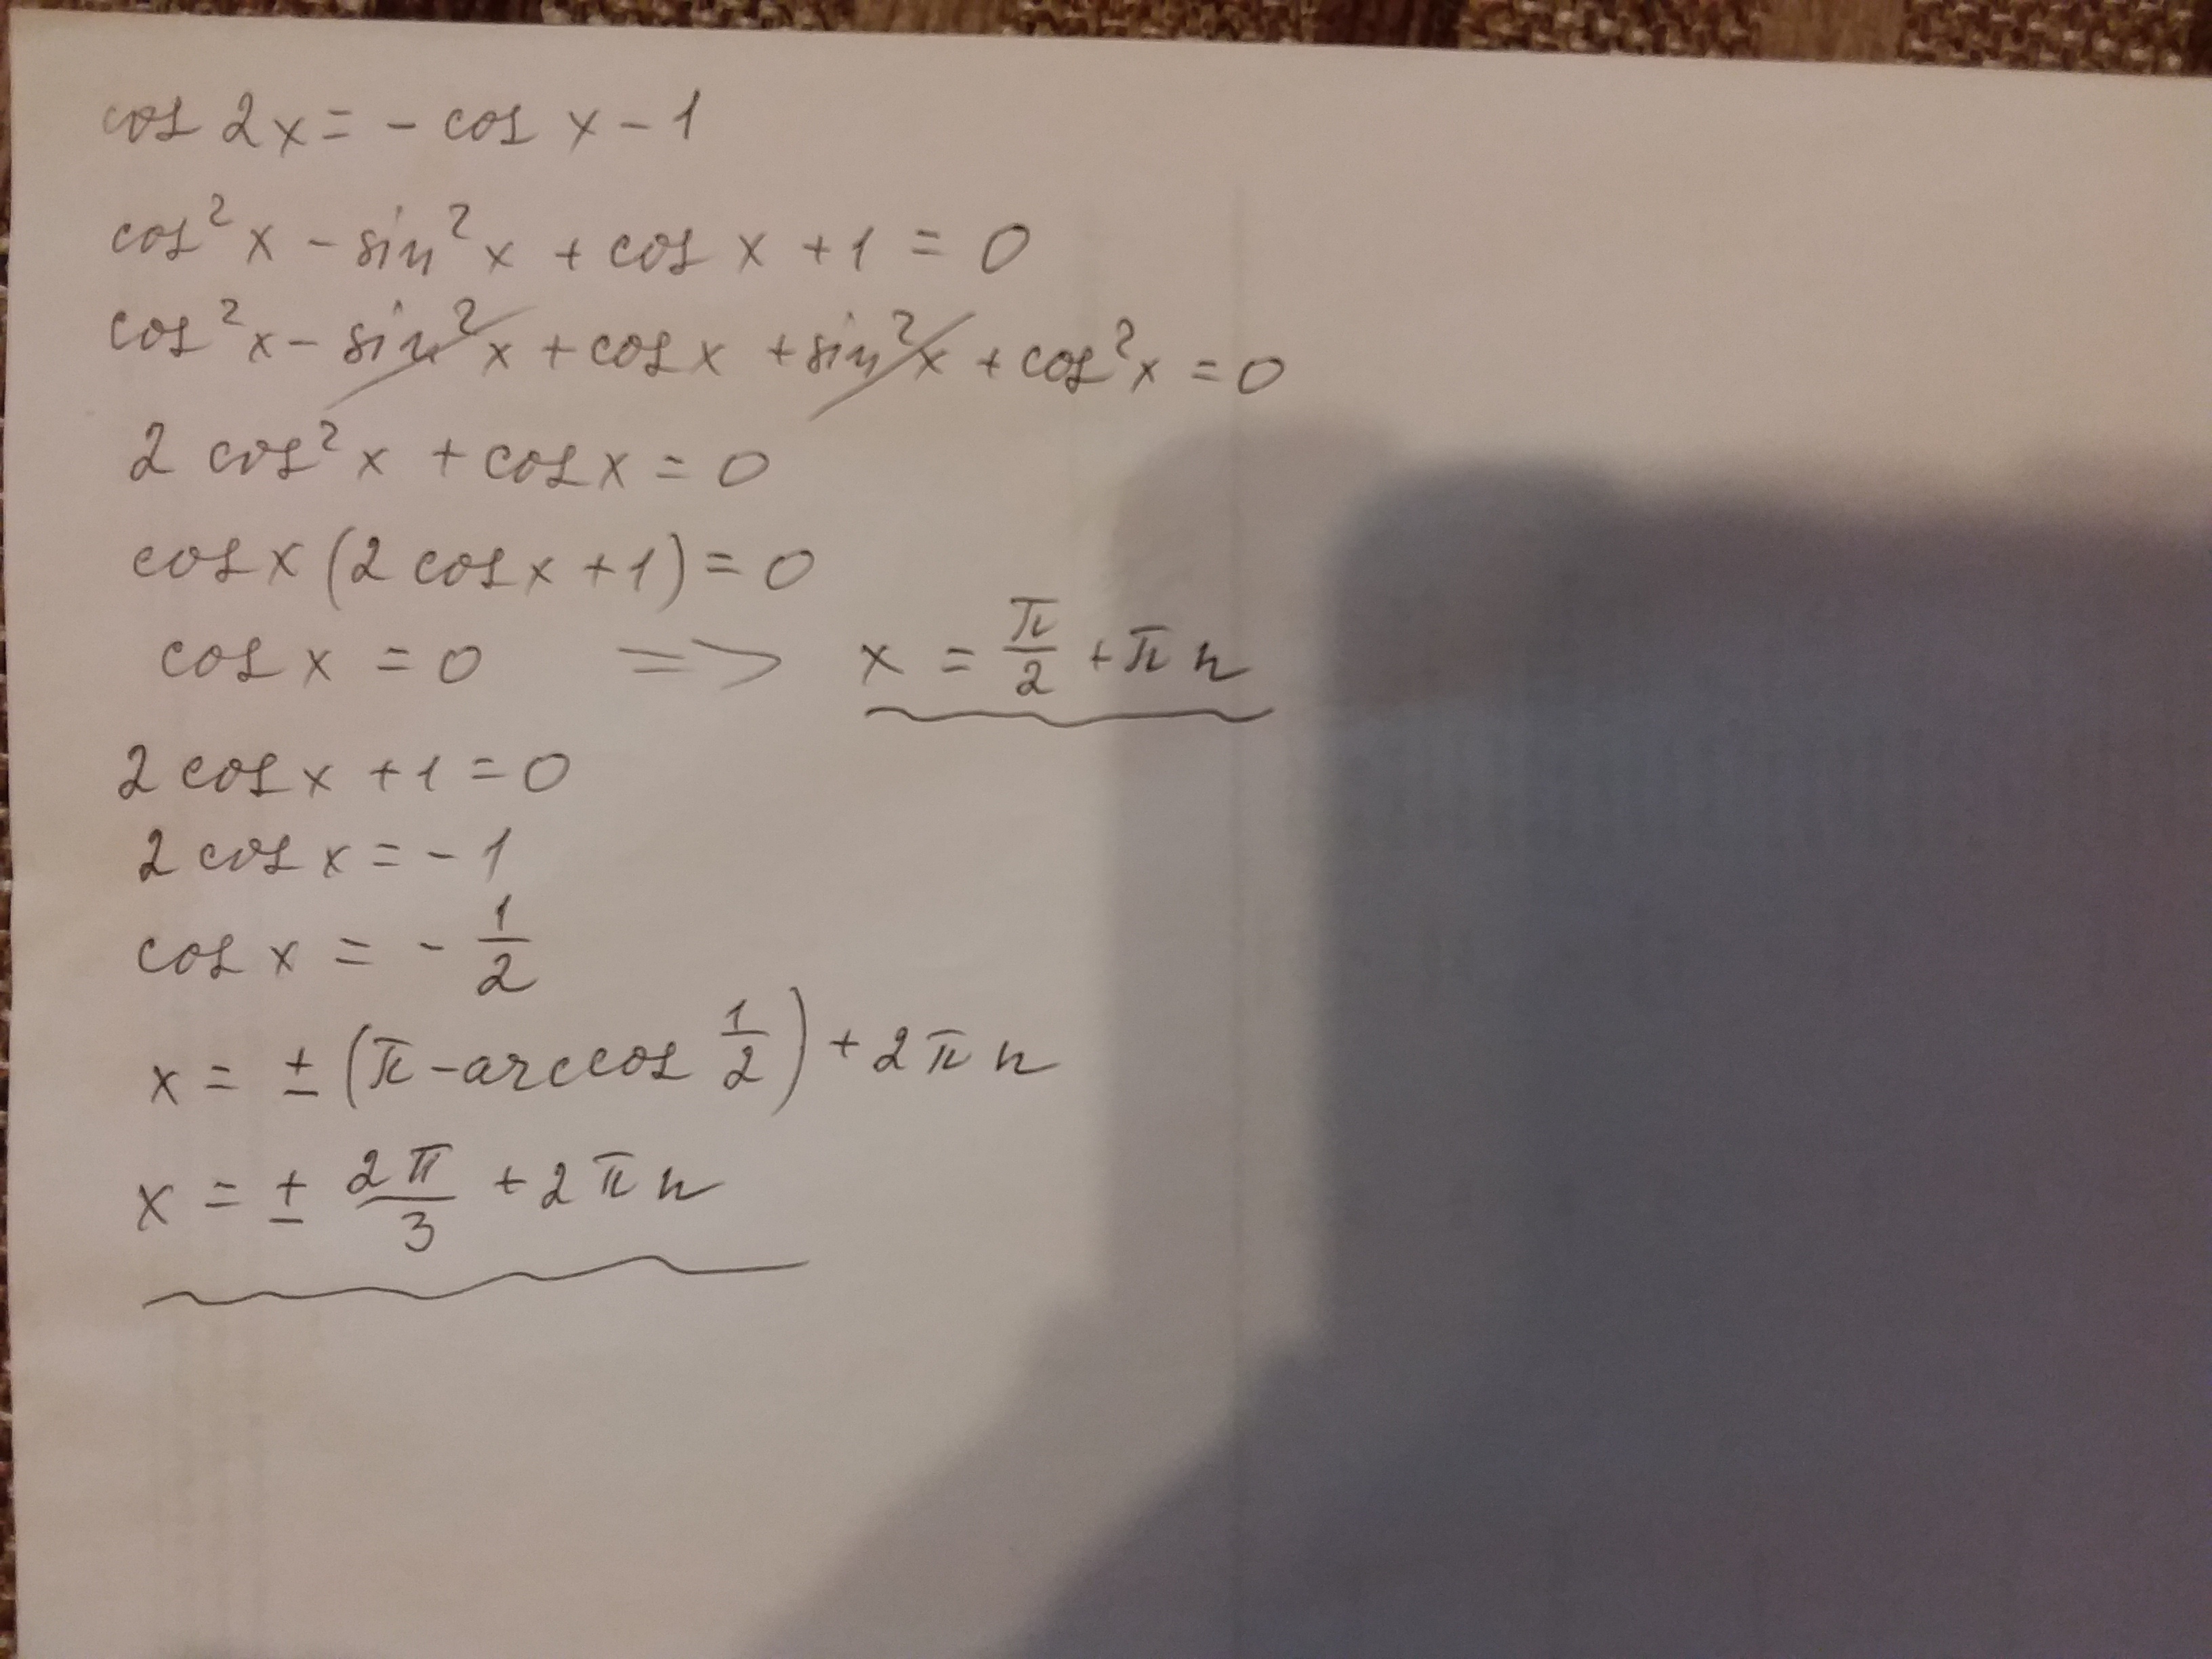 cos 2x = - cos x - 1
cos² x - sin² x + cos x + 1 = 0
cos² x - sin² x + cos x + sin² x + cos² x = 0
2 cos² x + cos x = 0
cos x (2 cos x + 1) = 0
cos x = 0 => x = π/2 + π n
2 cos x + 1 = 0
2 cos x = - 1
cos x = - 1/2
x = ± (π - arccos 1/2) + 2 π n
x = ± 2π/3 + 2 π n